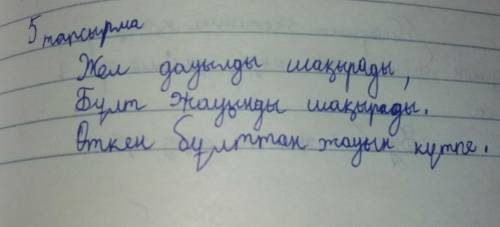 5 тапсырма
Жел дауылды шақырады,
Бұлт жауынды шақырады.
Өткен бұлттан жауын күтпе.